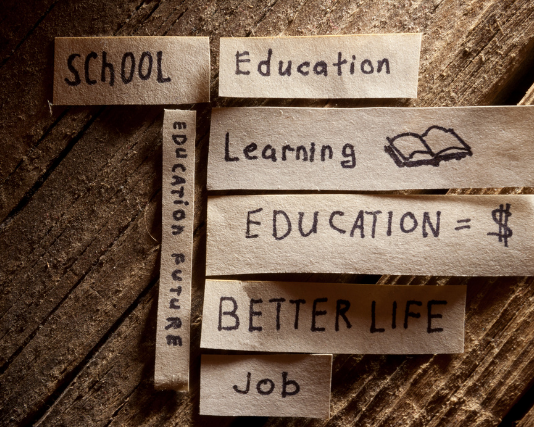 SChOOL
Education
EDUCATION FUTURE
Learning
EDUCATION = $
BETTER LIFE
Job